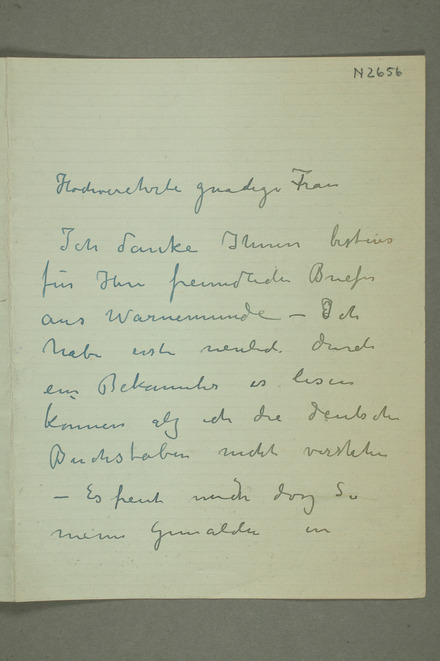 N2656
Hochverehrte gnadige Frau
Ich danke Ihnen bestens
für Ihre freundliche Briefe
aus Warnemunde – Ich
habe erst neulich durch
ein Bekannter es lesen
können als ich die deutsche
Buchstaben nicht verstehe
– Es freut mich das Sie
meine Gemalde in